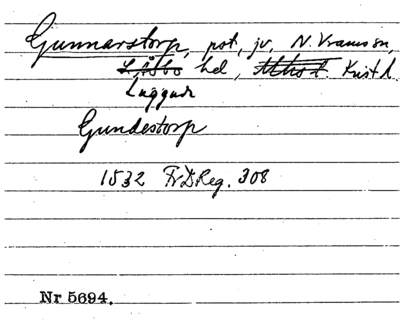 Gunnarstorp, pst, jv, N. Vram sn,
S. Åsbo hd, Mlhst. Krist l.
Luggude
Gundestorp
1532 FrDReg. 308
Nr 5694.